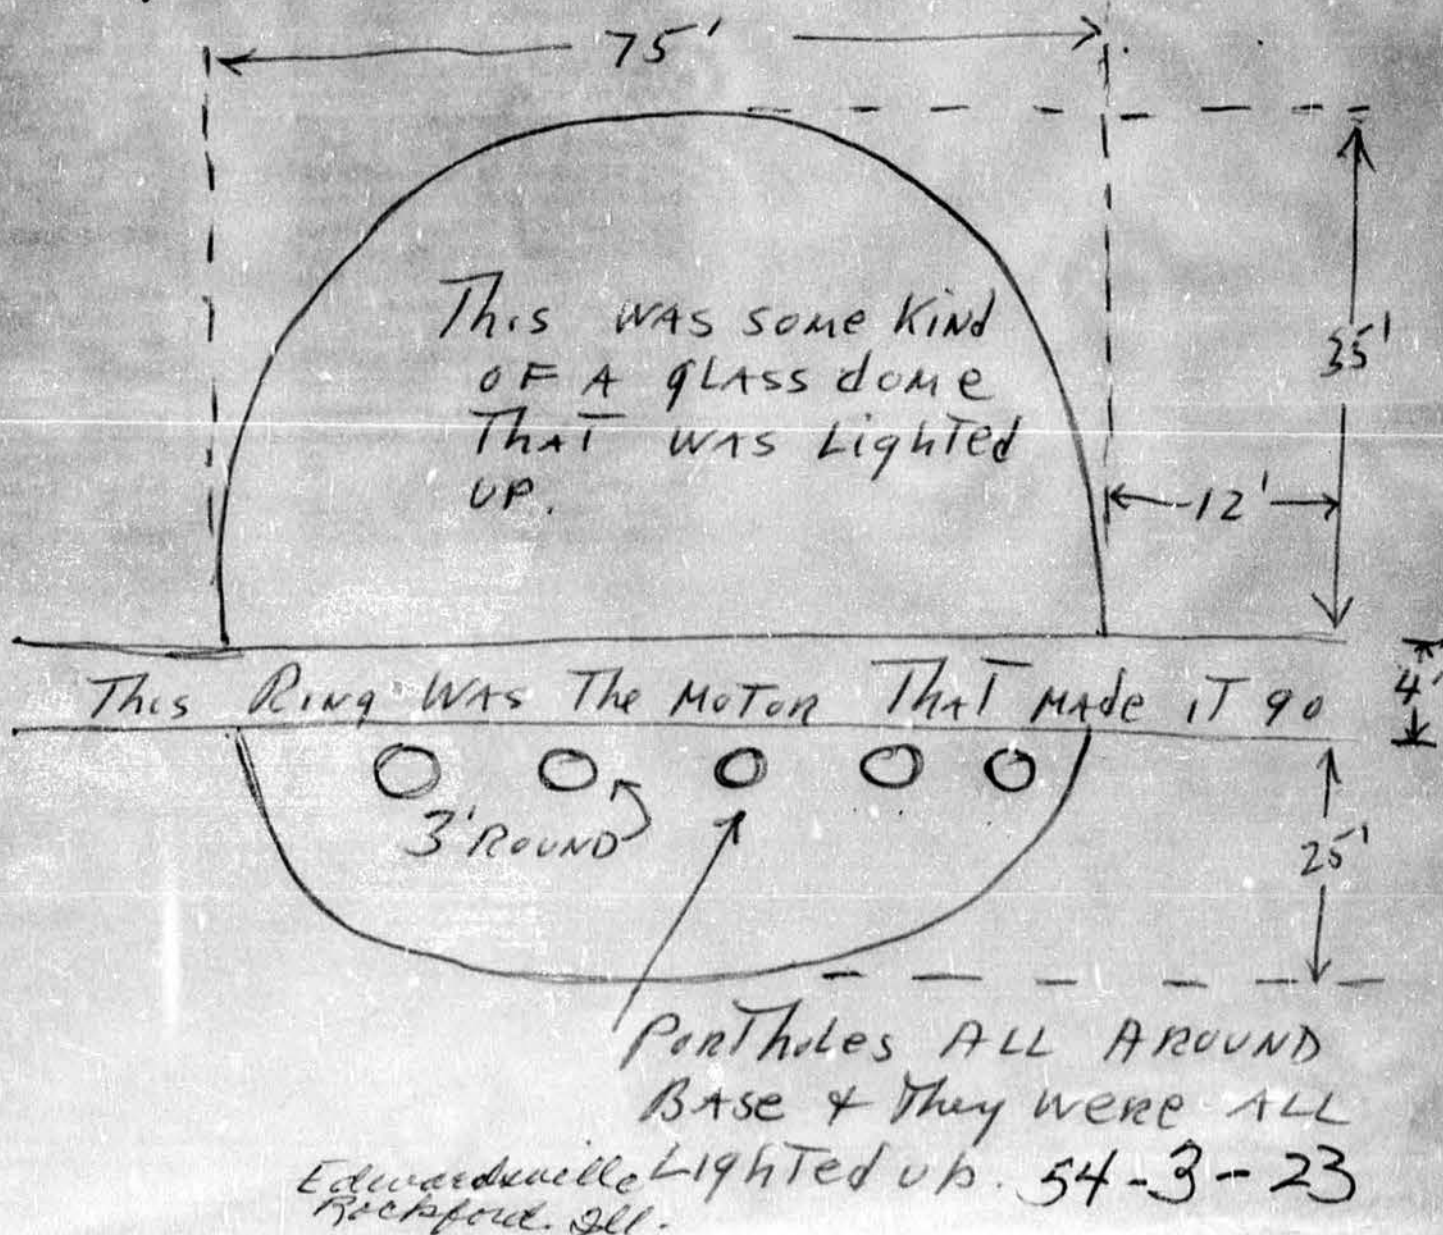 75'
This was some kind
of a glass dome
that was lighted
up.
35'
12'
This Ring was the motor that made it go
4'
3' round
25'
Portholes all around
Base & they were all
Lighted up. 54-3--23
Edwardsville
Rockford. Ill.